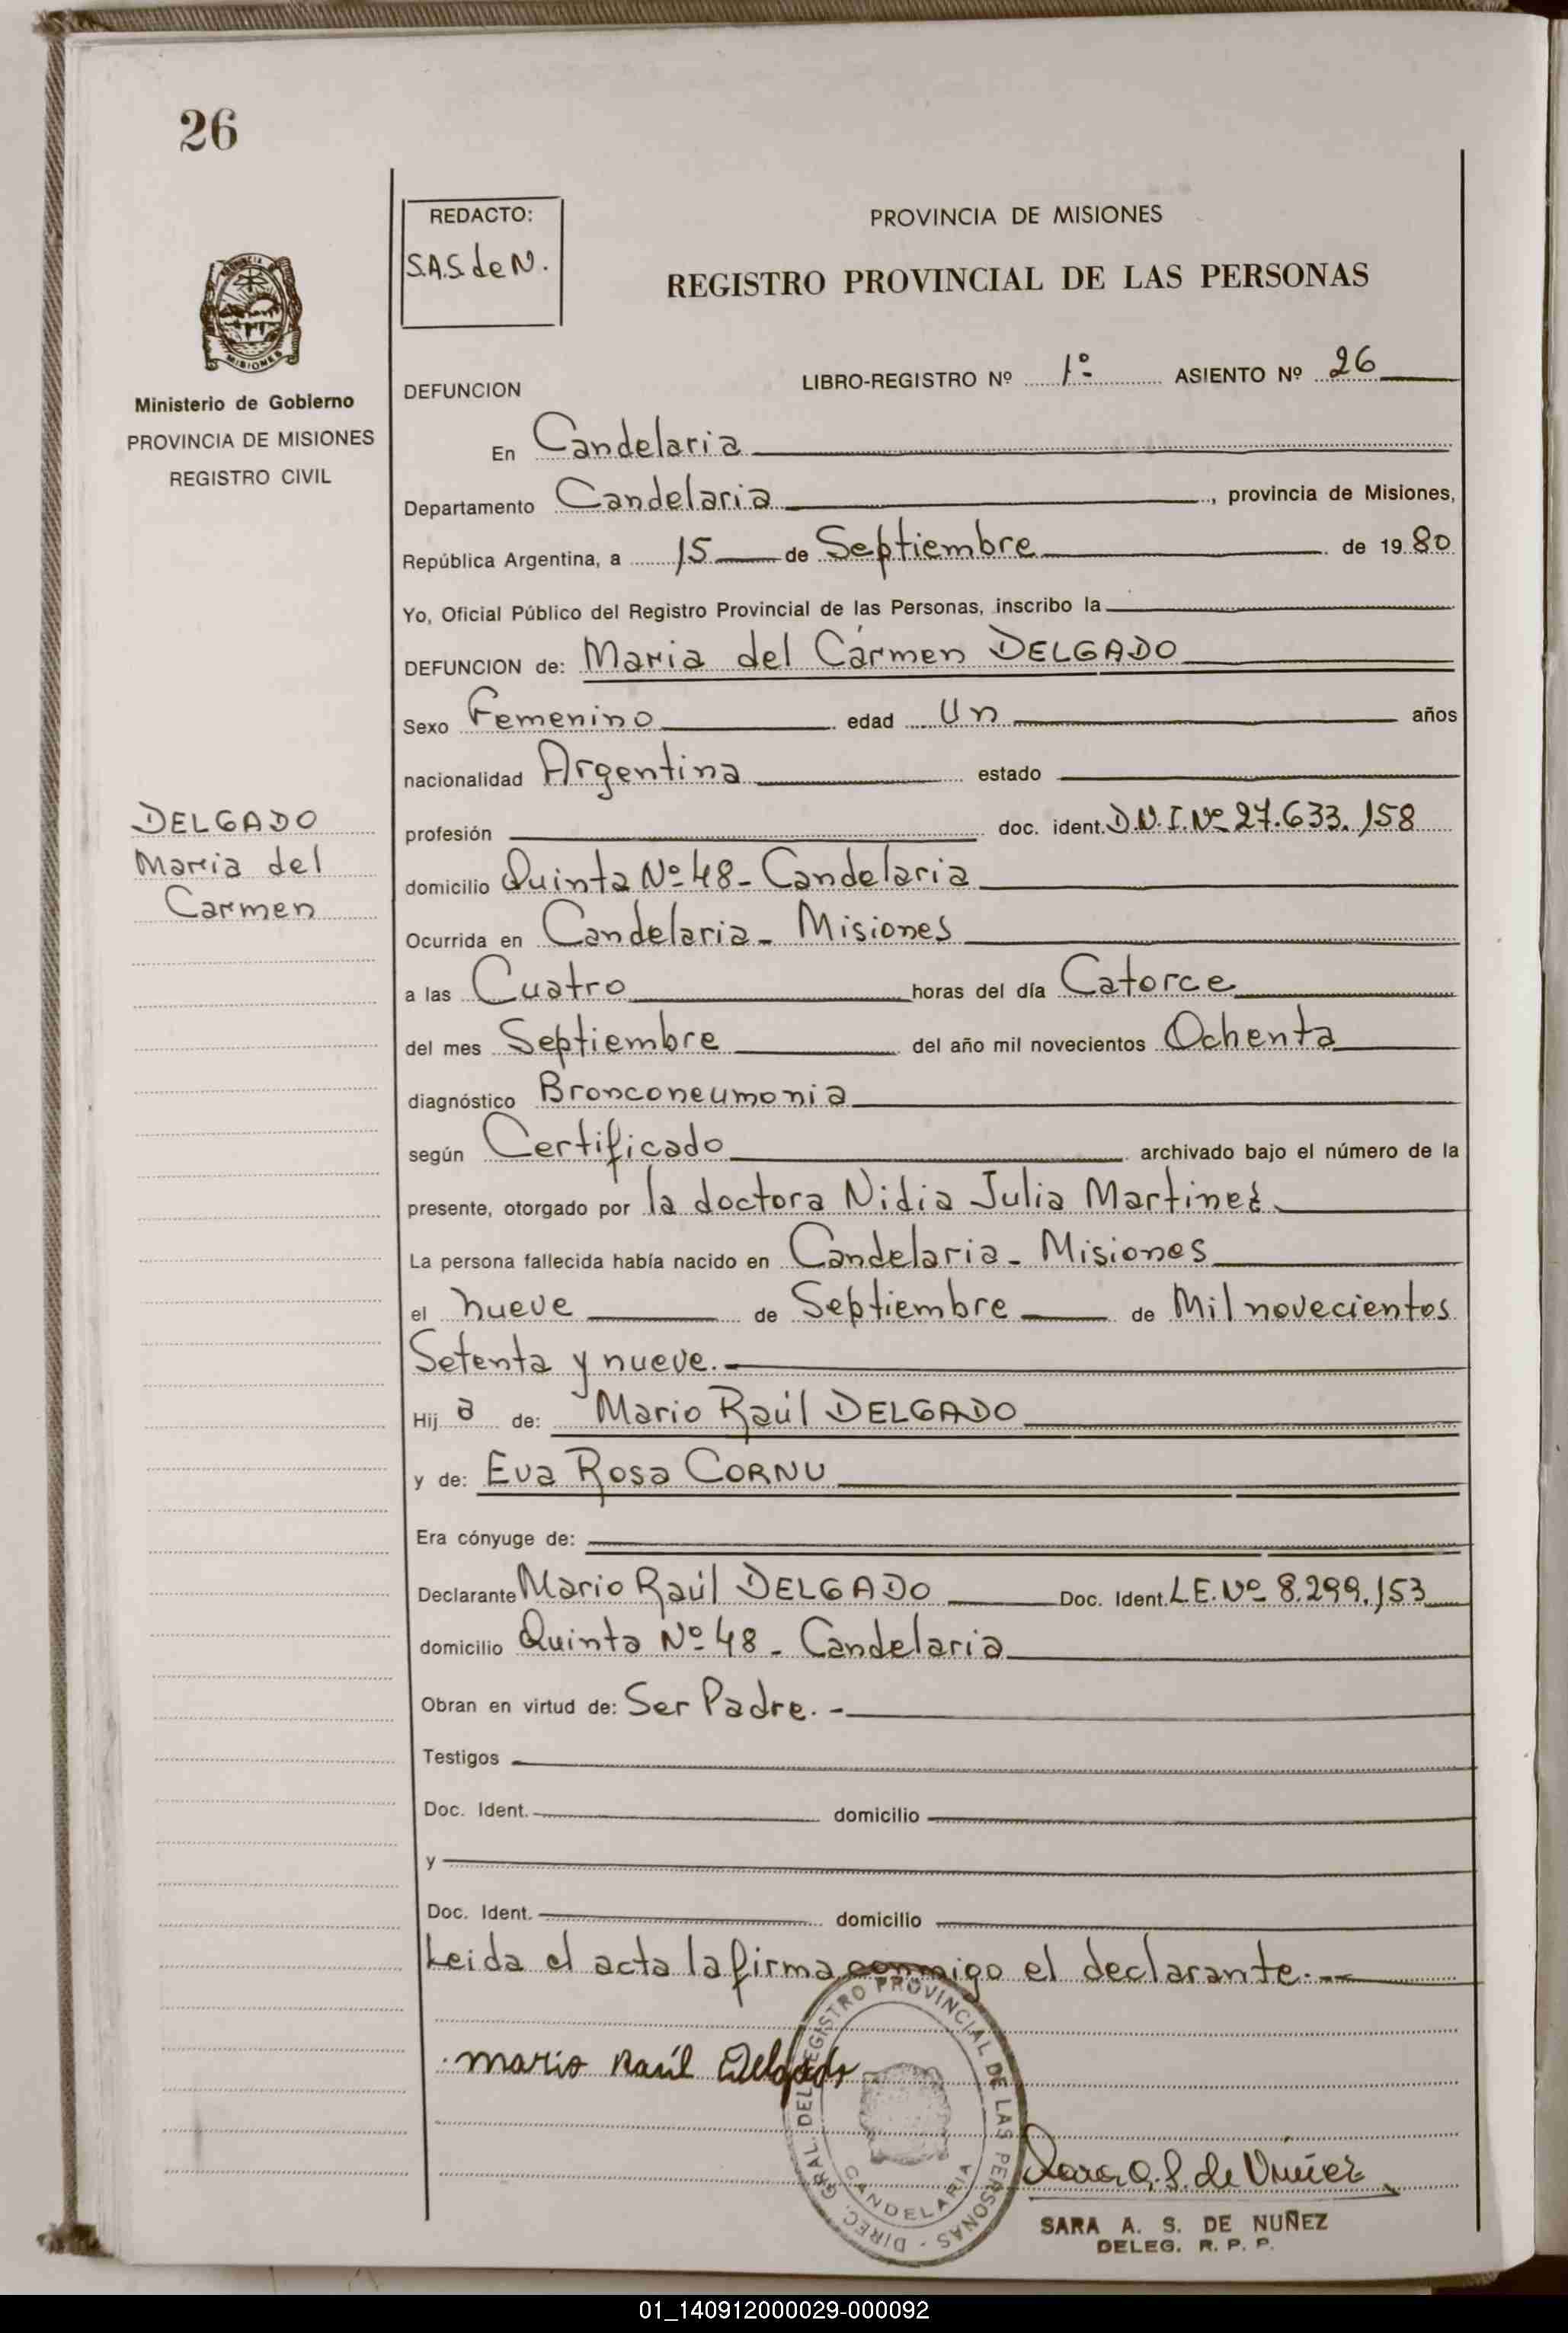 26
REDACTO:
S.A.S. de N.
PROVINCIA DE MISIONES
REGISTRO PROVINCIAL DE LAS PERSONAS
PROVINCIA DE
MISIONES
Ministerio de Gobierno
PROVINCIA DE MISIONES
REGISTRO CIVIL
DEFUNCION LIBRO-REGISTRO Nº 1º ASIENTO Nº 26
En Candelaria
Departamento Candelaria, provincia de Misiones,
República Argentina, a 15 de Septiembre de 1980
Yo, Oficial Público del Registro Provincial de las Personas, inscribo la
DEFUNCION de: Maria del Cármen DELGADO
Sexo Femenino edad Un años
nacionalidad Argentina estado
DELGADO
Maria del
Carmen
profesión doc. ident. D.N.I. Nº 27.633.158
domicilio Quinta Nº 48 - Candelaria
Ocurrida en Candelaria - Misiones
a las Cuatro horas del día Catorce
del mes Septiembre del año mil novecientos Ochenta
diagnóstico Bronconeumonia
según Certificado archivado bajo el número de la
presente, otorgado por la doctora Nidia Julia Martinez
La persona fallecida había nacido en Candelaria - Misiones
el nueve de Septiembre de Mil novecientos
Setenta y nueve.
Hij a de: Mario Raúl DELGADO
y de: Eva Rosa CORNU
Era cónyuge de:
Declarante Mario Raúl DELGADO Doc. Ident. L.E. Nº 8.299.153
domicilio Quinta Nº 48 - Candelaria
Obran en virtud de: Ser Padre. -
Testigos
Doc. Ident. domicilio
y
Doc. Ident. domicilio
Leida el acta la firma conmigo el declarante. --
Mario Raúl Delgado
DIREC. GRAL. DEL REGISTRO PROVINCIAL DE LAS PERSONAS -
CANDELARIA
Sara A. S. de Nuñez
SARA A. S. DE NUÑEZ
DELEG. R. P. P.
01_140912000029-000092